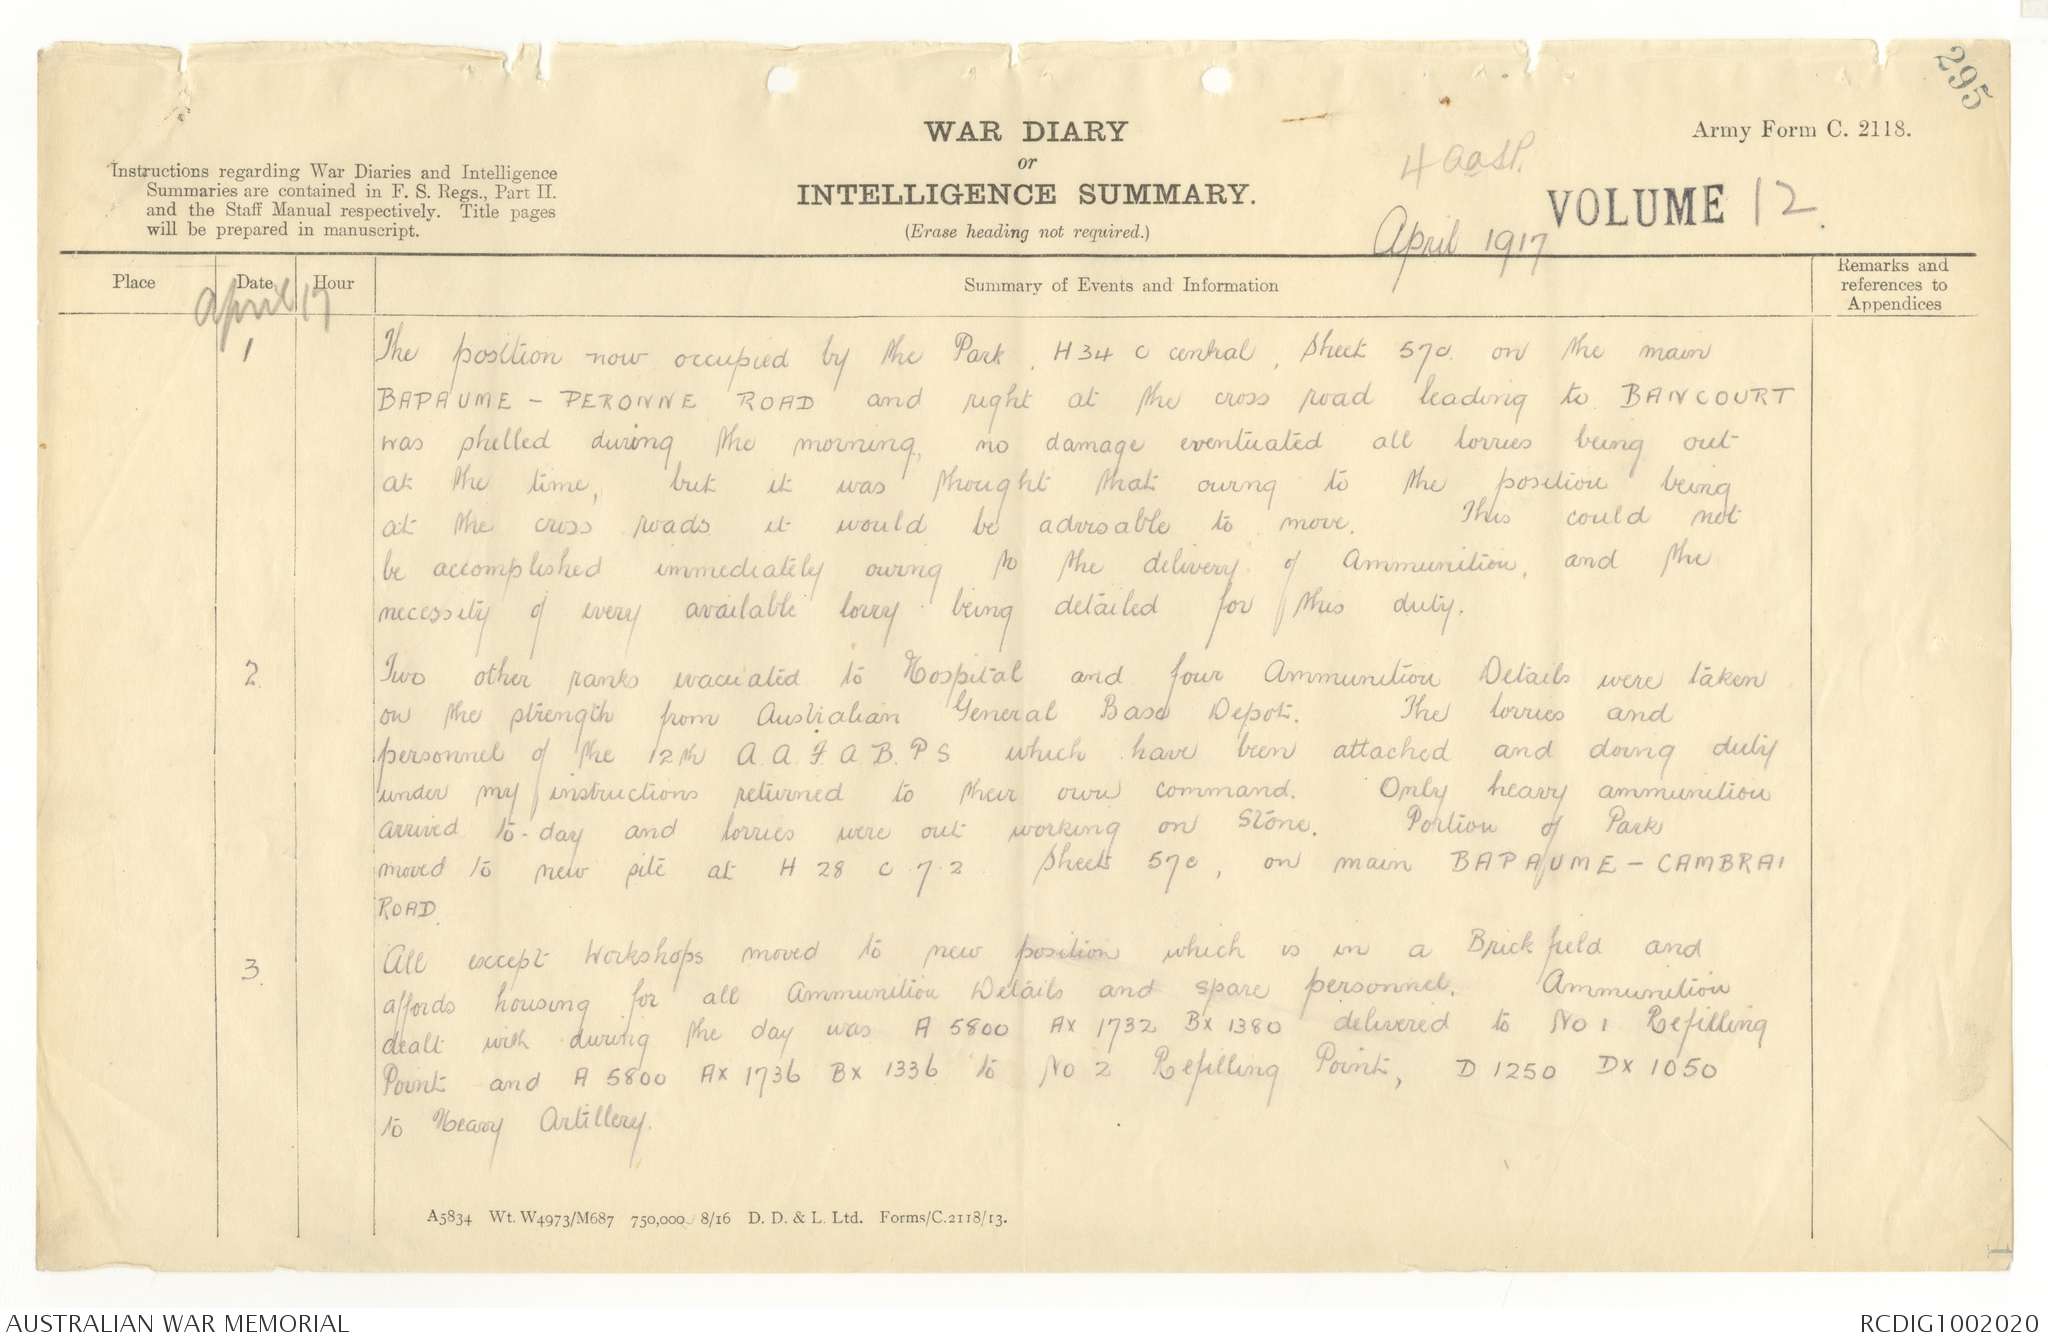 295
WAR DIARY
or
INTELLIGENCE SUMMARY.
(Erase heading not required.)
Army Form C. 2118.
Instructions regarding War Diaries and Intelligence
Summaries are contained in F. S. Regs., Part II.
and the Staff Manual respectively. Title pages
will be prepared in manuscript.
4 AASP.
VOLUME 12.
April 1917
Place Date Hour Summary of Events and Information Remarks and
references to
Appendices
April 17
1 The position now occupied by the Park, H 34 c central, Sheet 57c. on the main
BAPAUME - PERONNE ROAD and right at the cross road leading to BANCOURT
was shelled during the morning, no damage eventuated all lorries being out
at the time, but it was thought that owing to the position being
at the cross roads it would be advisable to move. This could not
be accomplished immediately owing to the delivery of Ammunition, and the
necessity of every available lorry being detailed for this duty.
2. Two other ranks evacuated to Hospital and four Ammunition Details were taken
on the strength from Australian General Base Depot. The lorries and
personnel of the 12th A.A.F.A.B.P.S which have been attached and doing duty
under my instructions returned to their own command. Only heavy ammunition
arrived to-day and lorries were out working on Stone. Portion of Park
moved to new site at H 28 c 7.2 Sheet 57c, on main BAPAUME - CAMBRAI
ROAD.
3. All except Workshops moved to new position which is in a Brick field and
affords housing for all Ammunition Details and spare personnel. Ammunition
dealt with during the day was A 5800 AX 1732 BX 1380 delivered to No 1 Refilling
Point and A 5800 AX 1736 BX 1336 to No 2 Refilling Point, D 1250 DX 1050
to Heavy Artillery.
A5834 Wt. W4973/M687 750,000 8/16 D. D. & L. Ltd. Forms/C.2118/13.
AUSTRALIAN WAR MEMORIAL
RCDIG1002020